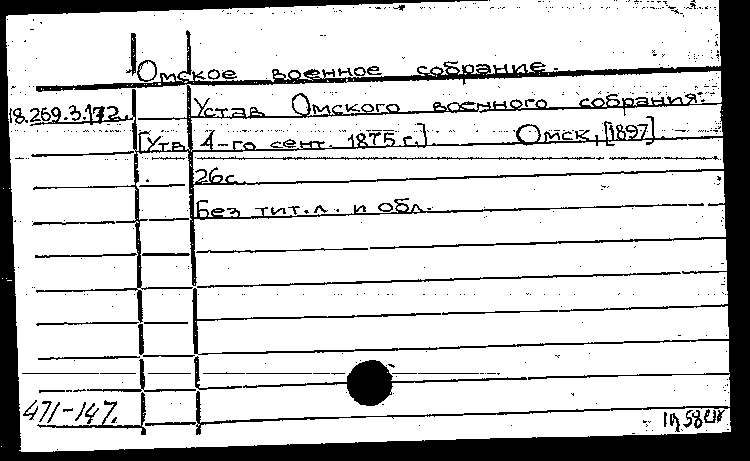 Омское военное собрание.
18.269.3.172. Устав Омского военного собрания.
[Утв. 4-го сент. 1875 г.] Омск, [1897].
26с.
Без тит.л. и обл.
471-147.